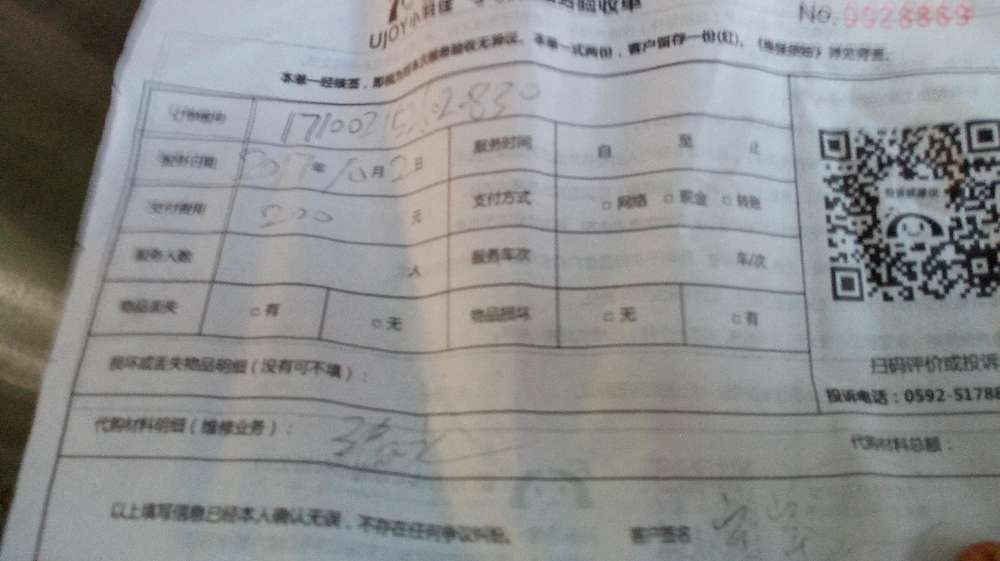 UJOY小羽佳 验收单
No. 0028869
本单一经签签，即视为对本次服务验收无异议。本单一式两份，客户留存一份(红)，《维保须知》详见背面。
订单编号
服务日期 2017年10月2日 服务时间 自 至 止
支付费用 200 元 支付方式 □网络 □现金 □转账
服务人数 人 服务车次 车/次
物品丢失 □有 □无 物品损坏 □无 □有
损坏或丢失物品明细（没有可不填）：
扫码评价或投诉
投诉电话：0592-51788
代购材料明细（维修业务）：
代购材料总额：
以上填写信息已经本人确认无误，不存在任何争议纠纷。 客户签名：